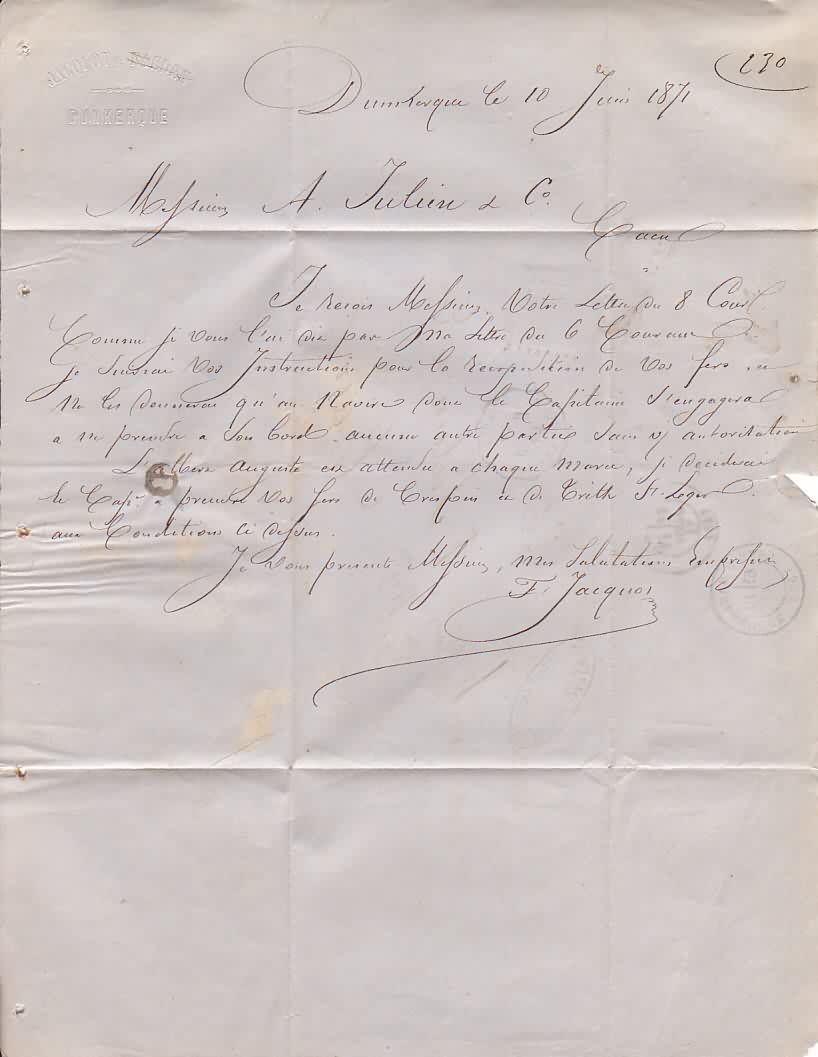 DUNKERQUE
230
Dunkerque le 10 Juin 1871
Messieurs A. Julien & Co.
Caen
Je recois Messieurs Votre Lettre du 8 Court.
Comme je vous l'ai dit par Ma lettre du 6 Courant
Je suivrai Vos Instructions pour la reexpedition de Vos fers, et
Ne les donnerai qu'au Navire dont le Capitaine S'engagera
a ne prendre a Son bord aucune autre partie Sans v/ autorisation
L'Albert Auguste est attendu a chaque maree, je deciderai
le Capne a prendre Vos fers de Crespin et de Trith St Leger
aux Conditions Ci dessus.
Je Vous presente Messieurs, mes Salutations Empressées
F. Jacquot